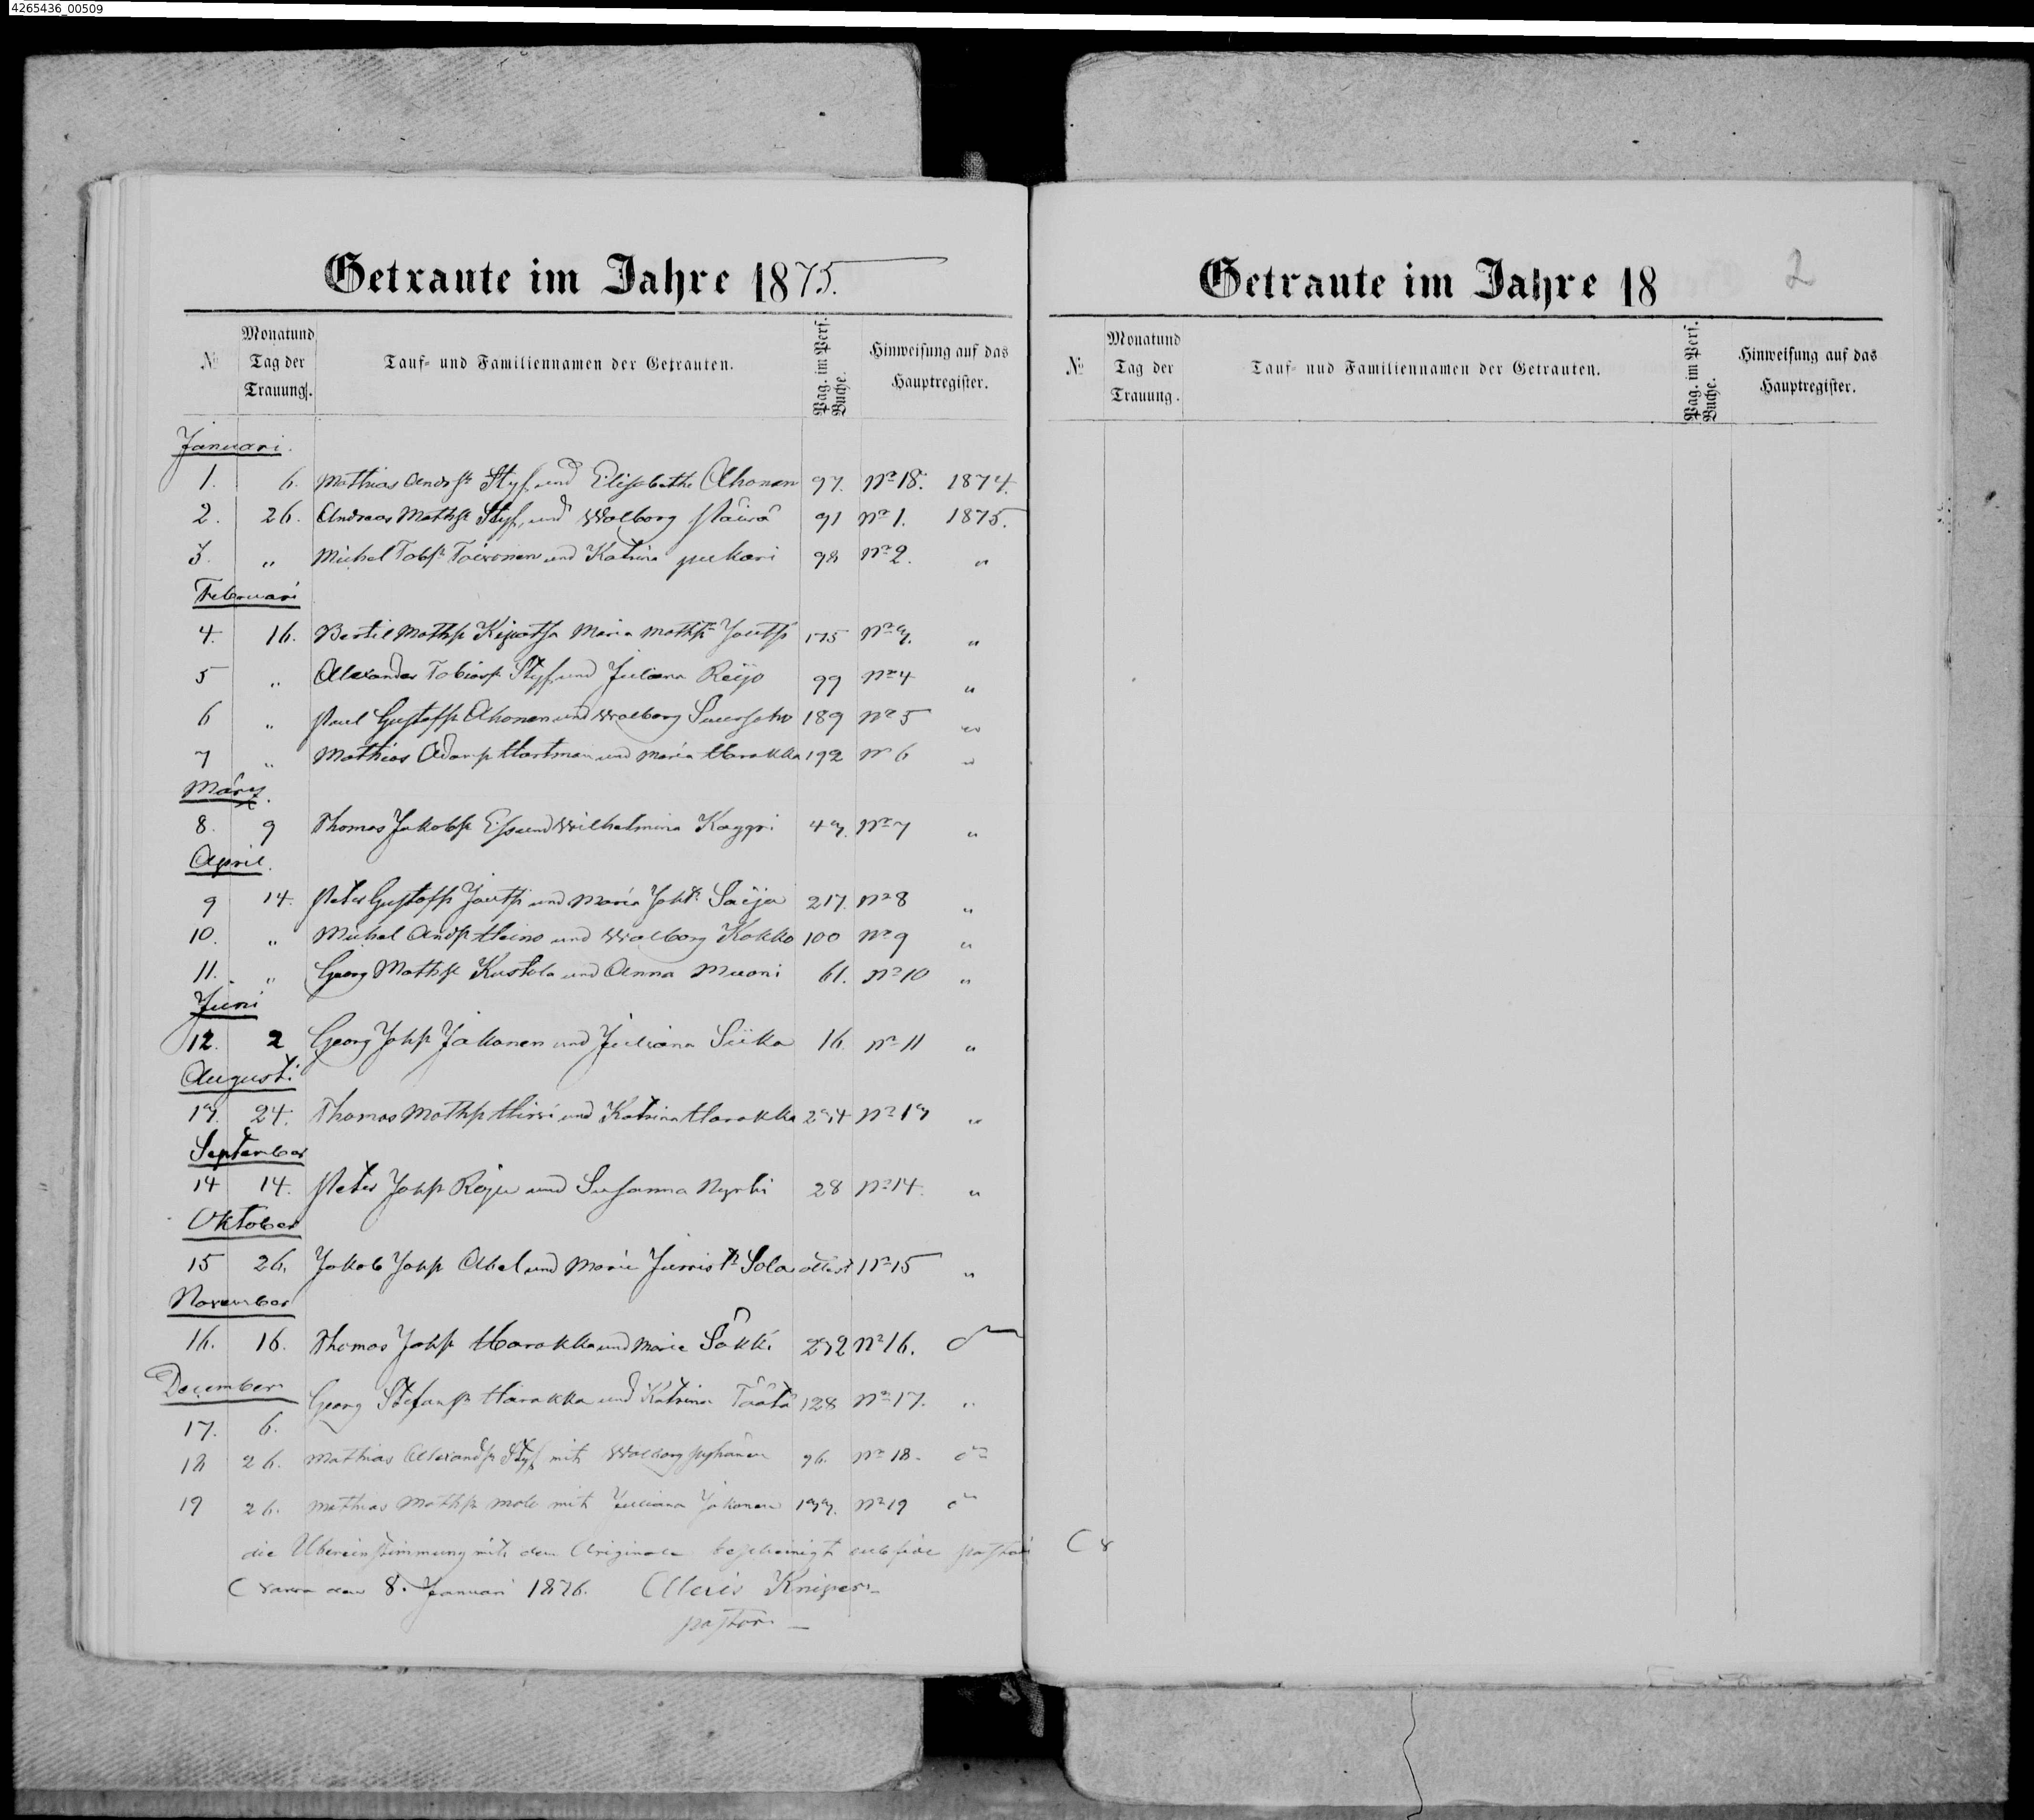 4265436_00509
Getraute im Jahre 1875.
№ Monat und Tag der Trauung. Tauf- und Familiennamen der Getrauten. Pag. im Pers. Buche. Hinweisung auf das Hauptregister.
Januari.
1. 6. Mathias Andrss Styf und Elisabeth Ahonen 97. No 18. 1874.
2. 26. Andreas Mathss Styf und Walborg Päiwä 91 No 1. 1875.
3. „ Michel Tobss Toiwonen und Katrina pukari 98 No 2. „
Februari
4. 16. Bertil Mathss Kiwatsa Maria Mathss Joutsi 175 No 3. „
5 „ Alexander Tobiass Styf und Juliana Reijo 99 No 4 „
6 „ Paul Gustafss Ahonen und Walborg 189 No 5 „
7 „ Mathias Adamss Hartman und Maria Harakka 192 No 6 „
März.
8. 9 Thomas Jakobss und Wilhelmina Kappri 43. No 7 „
April.
9 14. Peter Gustafss Joutsi und Maria Johss Saija 217. No 8 „
10. „ Michel Andss Heino und Walborg Kokko 100 No 9 „
11. „ Georg Mathss Kustola und Anna Muoni 61. No 10 „
Juni
12. 2 Georg Johss Jakonen und Juliana Siika 16. No 11 „
Augusti
13. 24. Thomas Mathss Hirwi und Katrina Harakka 234 No 13 „
September
14 14. Peter Johss Roju und Susanna Nyrki 28 No 14. „
Oktober
15 26. Jakob Johss Abel und Maria Sola attest No 15 „
November
16. 16. Thomas Johss Harakka und Maria Säkki 232 No 16. do
December Georg Stefanss Harakka und Katrina Täätä 128 No 17. „
17. 6.
18 26. Mathias Alexandss Styf mit Walborg 96. No 18. do
19 26. Mathias Mathss Mob mit Juliana Jakonen 133. No 19 do
die Übereinstimmung mit dem Originale bescheinigt sub fide pastorali
den 8. Januari 1876. Alexis Kniper
pastor
Getraute im Jahre 18
2
№ Monat und Tag der Trauung. Tauf- und Familiennamen der Getrauten. Pag. im Pers. Buche. Hinweisung auf das Hauptregister.